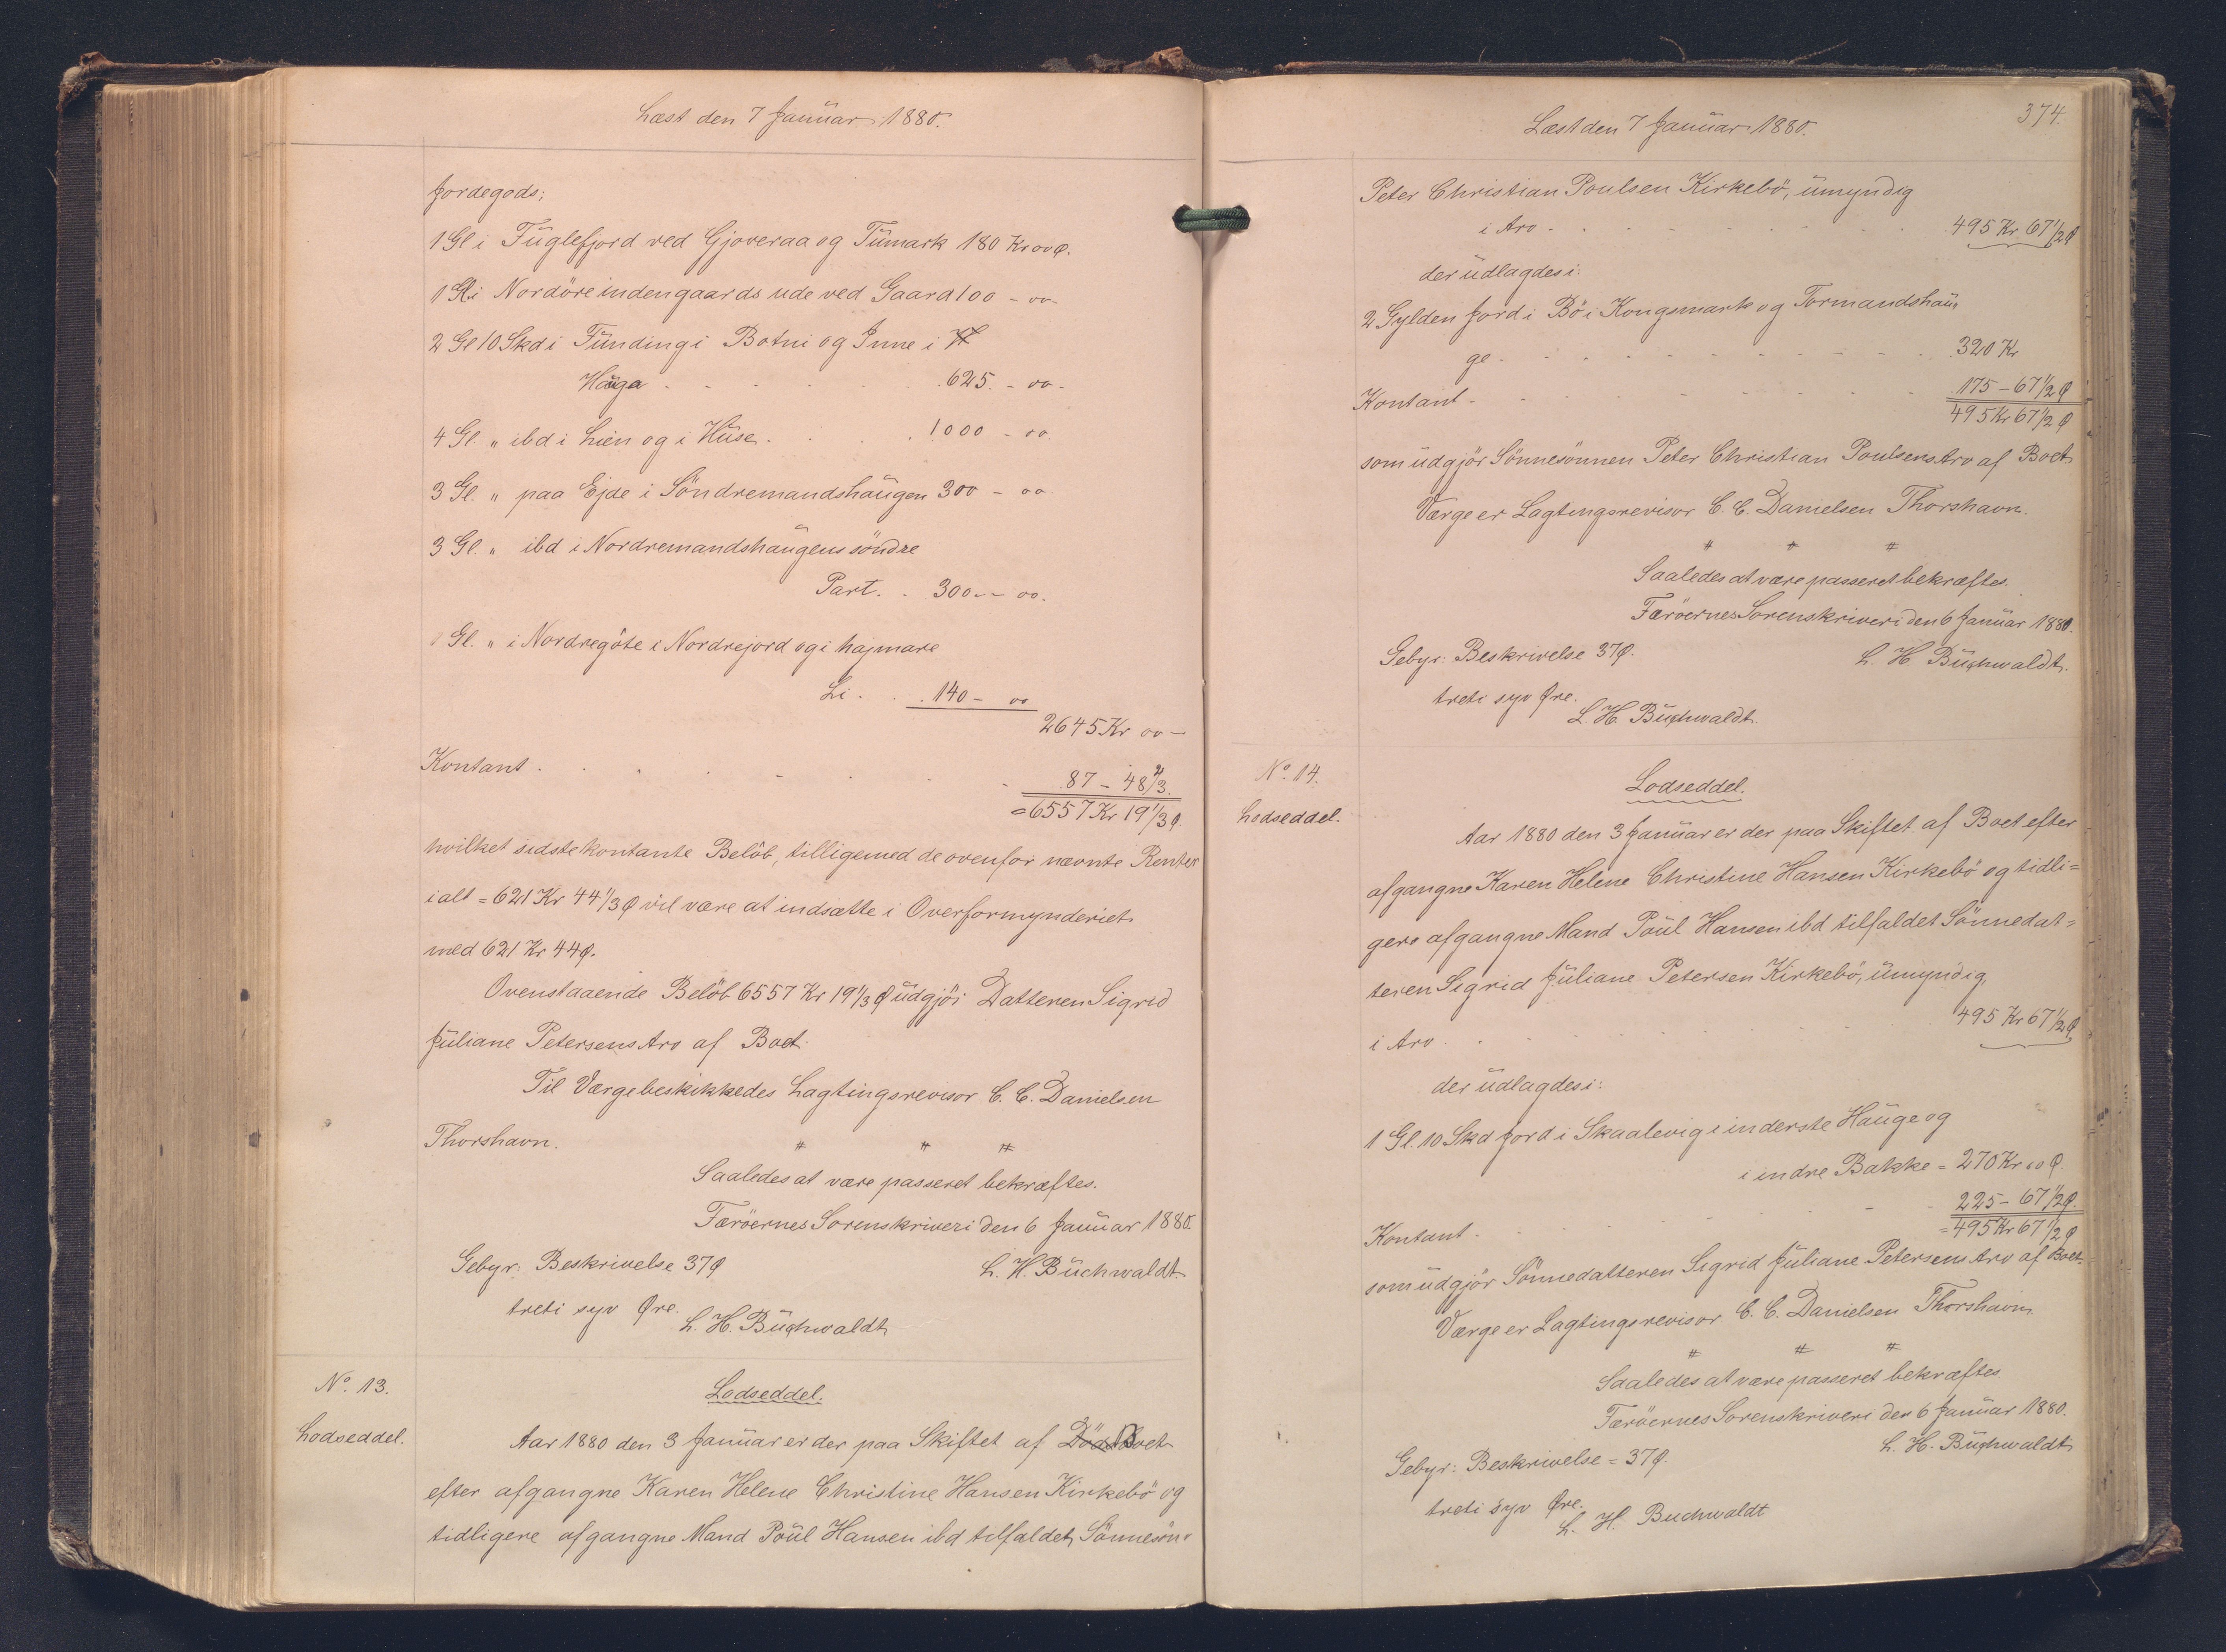 Læst den 7 Januar 1880.
Jordegods;
1 Gl i Fuglefjord ved Gjoveraa og Tumark 180 Kr 00 Ø.
1 Gl i Nordöre indengaards ude ved Gaard 100 - 00
2 Gl 10 Skd i Funding i Botni og Inne i H
Hauga . . . . . 625. - 00 -
4 Gl. " ibd i Lien og i Huse . . . 1000 - 00
3 Gl. " paa Ejde i Söndremandshaugen 300 - 00
3 Gl. " ibd i Nordremandshaugens söndre
Part. . 300 -- 00.
1 Gl. " i Nordregöte i Nordrejord og i hajmare
Li . . 140 - 00
2645 Kr 00 -
Kontant . . . . . . . 87 - 48 2/3.
= 6557 Kr 19 1/3 Ø
hvilket sidste kontante Belöb, tilligemed de ovenfor nævnte Renter
i alt = 621 Kr 44 1/3 Ø vil være at indsætte i Overformynderiet
med 621 Kr 44 Ø.
Ovenstaaende Belöb 6557 Kr 19 1/3 Ø udgjör Datteren Sigrid
Juliane Petersens Arv af Boet.
Til Værge beskikkedes Lagtingsrevisor C. C. Danielsen
Thorshavn. # # #
Saaledes at være passeret bekræftes.
Færöernes Sorenskriveri den 6 Januar 1880.
Gebyr: Beskrivelse 37 Ø L. H. Buchwaldt
treti syv Øre. L. H. Buchwaldt
No. 13. Lodseddel.
Lodseddel. Aar 1880 den 3 Januar er der paa Skiftet af Döds Boet
efter afgangne Karen Helene Christine Hansen Kirkebö og
tidligere afgangne Mand Poul Hansen ibd tilfaldet Sönnesön-
374.
Læst den 7 Januar 1880.
Peter Christian Poulsen Kirkebö, umyndig
i Arv . . . . . . . . 495 Kr 67 1/2 Ø
der udlagdes i:
2 Gylden Jord i Bö i Kongsmark og Tormandshau
ge . . . . . . . . . 320 Kr
Kontant . . . . . . . . 175 - 67 1/2 Ø
495 Kr 67 1/2 Ø
som udgjör Sönnesönnen Peter Christian Poulsens Arv af Boet
Værge er Lagtingsrevisor C. C. Danielsen Thorshavn.
# # #
Saaledes at være passeret bekræftes.
Færöernes Sorenskriveri den 6 Januar 1880.
Gebyr: Beskrivelse 37 Ø. L. H. Buchwaldt.
treti syv Øre.
L. H. Buchwaldt.
No. 14. Lodseddel.
Lodseddel. Aar 1880 den 3 Januar er der paa Skiftet af Boet efter
afgangne Karen Helene Christine Hansen Kirkebö og tidli=
gere afgangne Mand Poul Hansen ibd tilfaldet Sönnedat=
teren Sigrid Juliane Petersen Kirkebö, umyndig,
i Arv . . . . . . . . 495 Kr 67 1/2 Ø
der udlagdes i:
1 Gl. 10 Skd Jord i Skaalevig i inderste Hauge og
i indre Bakke = 270 Kr 00 Ø.
Kontant . . . . . . . . 225 - 67 1/2 Ø.
= 495 Kr 67 1/2 Ø
som udgjör Sönnedatteren Sigrid Juliane Petersens Arv af Boet.
Værge er Lagtingsrevisor C. C. Danielsen Thorshavn
# # #
Saaledes at være passeret bekræftes
Færöernes Sorenskriveri den 6 Januar 1880.
L. H. Buchwaldt
Gebyr: Beskrivelse = 37 Ø.
treti syv Øre.
L. H. Buchwaldt